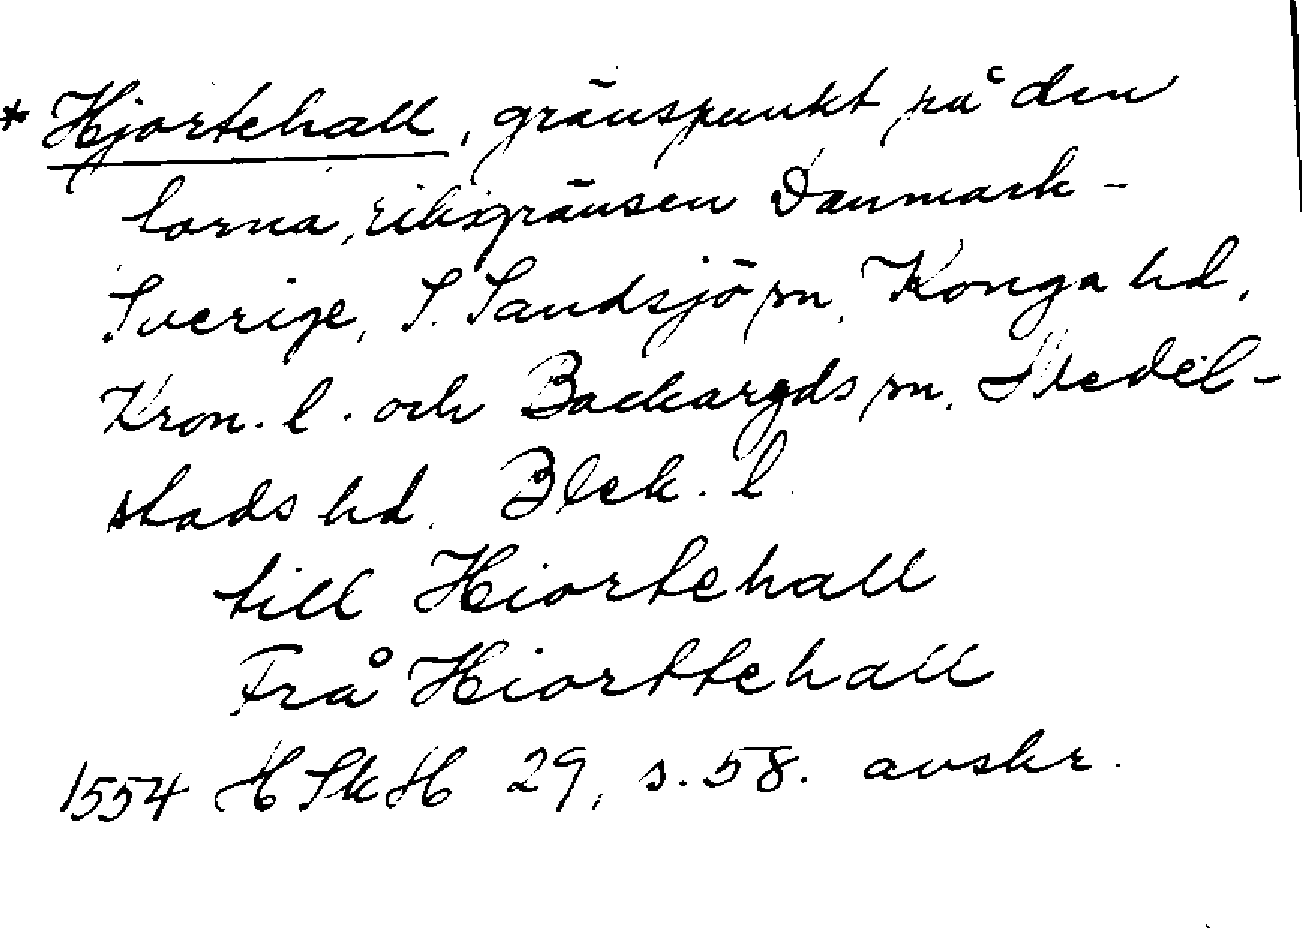 * Hjortehall, gränspunkt på den
forna riksgränsen Danmark-
Sverige, S. Sandsjö sn, Konga hd,
Kron. l. och Backaryds sn, Medel-
stads hd, Blek. l.
till Hiortehall
Frå Hiorttehall
1554 HSkH 29, s. 58. avskr.